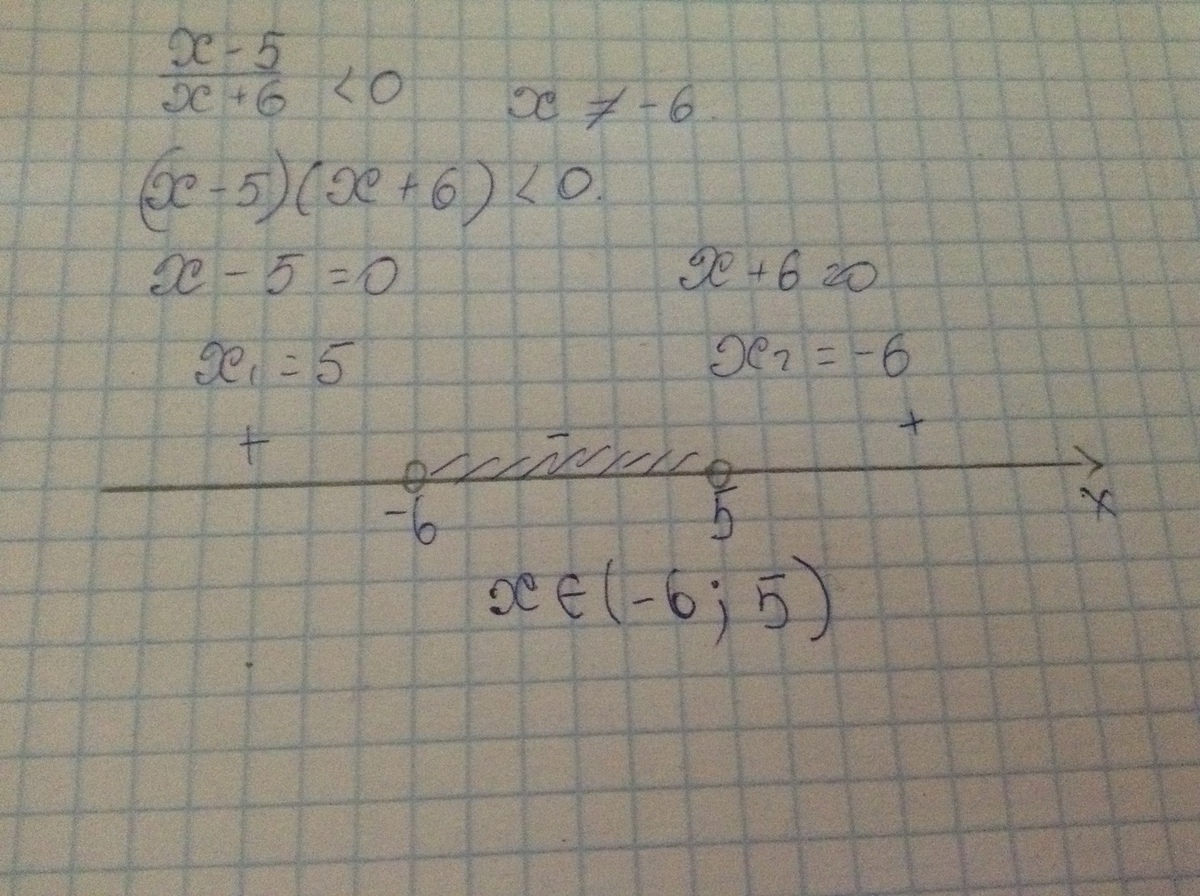 x-5/x+6 <0 x ≠ -6.
(x-5)(x+6)<0.
x-5=0 x+6=0
x₁=5 x₂=-6
+ - +
-6 5 x
x∈(-6;5)